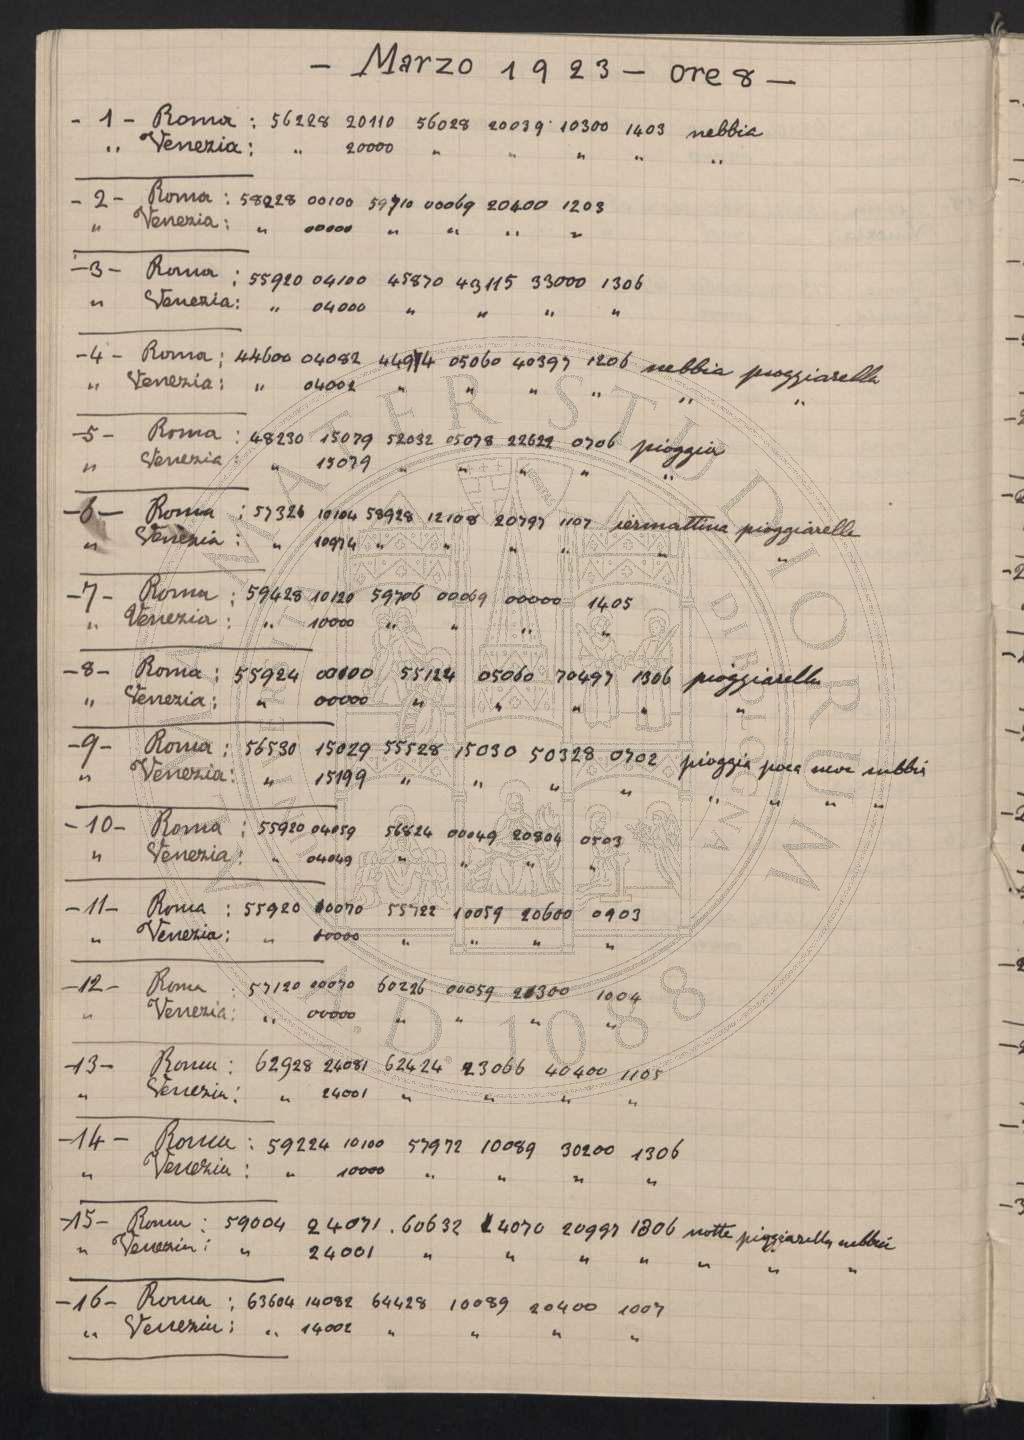 - Marzo 1923 - ore 8 -
- 1 - Roma : 56228 20110 56028 20039 10300 1403 nebbia
" Venezia : " 20000 " " " " "
- 2 - Roma : 58228 00100 59710 00069 20400 1203
" Venezia : " 00000 " " " "
- 3 - Roma : 55920 04100 45870 43115 33000 1306
" Venezia : " 04000 " " " "
- 4 - Roma : 44600 04082 44974 05060 40397 1206 nebbia pioggiarella
" Venezia : " 04002 " " " " " "
- 5 - Roma : 48230 15079 52032 05078 22622 0706 pioggia
" Venezia : " 15079 " " " " "
- 6 - Roma : 57326 10104 58928 12108 20797 1107 iermattina pioggiarella
" Venezia : " 10974 " " " " " "
- 7 - Roma : 59428 10120 59706 00069 00000 1405
" Venezia : " 10000 " " " "
- 8 - Roma : 55924 00100 55124 05060 70497 1306 pioggiarella
" Venezia : " 00000 " " " " "
- 9 - Roma : 56530 15029 55528 15030 50328 0702 pioggia poca neve nebbia
" Venezia : " 15199 " " " " " " " "
- 10 - Roma : 55920 04059 56824 00049 20804 0503
" Venezia : " 04049 " " " "
- 11 - Roma : 55920 10070 55722 10059 20600 0903
" Venezia : " 10000 " " " "
- 12 - Roma : 57120 00070 60226 00059 21300 1004
" Venezia : " 00000 " " " "
- 13 - Roma : 62928 24081 62424 23066 40400 1105
" Venezia : " 24001 " " " "
- 14 - Roma : 59224 10100 57972 10089 30200 1306
" Venezia : " 10000 " " " "
- 15 - Roma : 59004 24071 . 60632 24070 20997 1306 notte pioggiarella nebbia
" Venezia : " 24001 " " " " " " "
- 16 - Roma : 63604 14082 64428 10089 20400 1007
" Venezia : " 14002 " " " "
ALMA MATER STUDIORUM
A.D. 1088